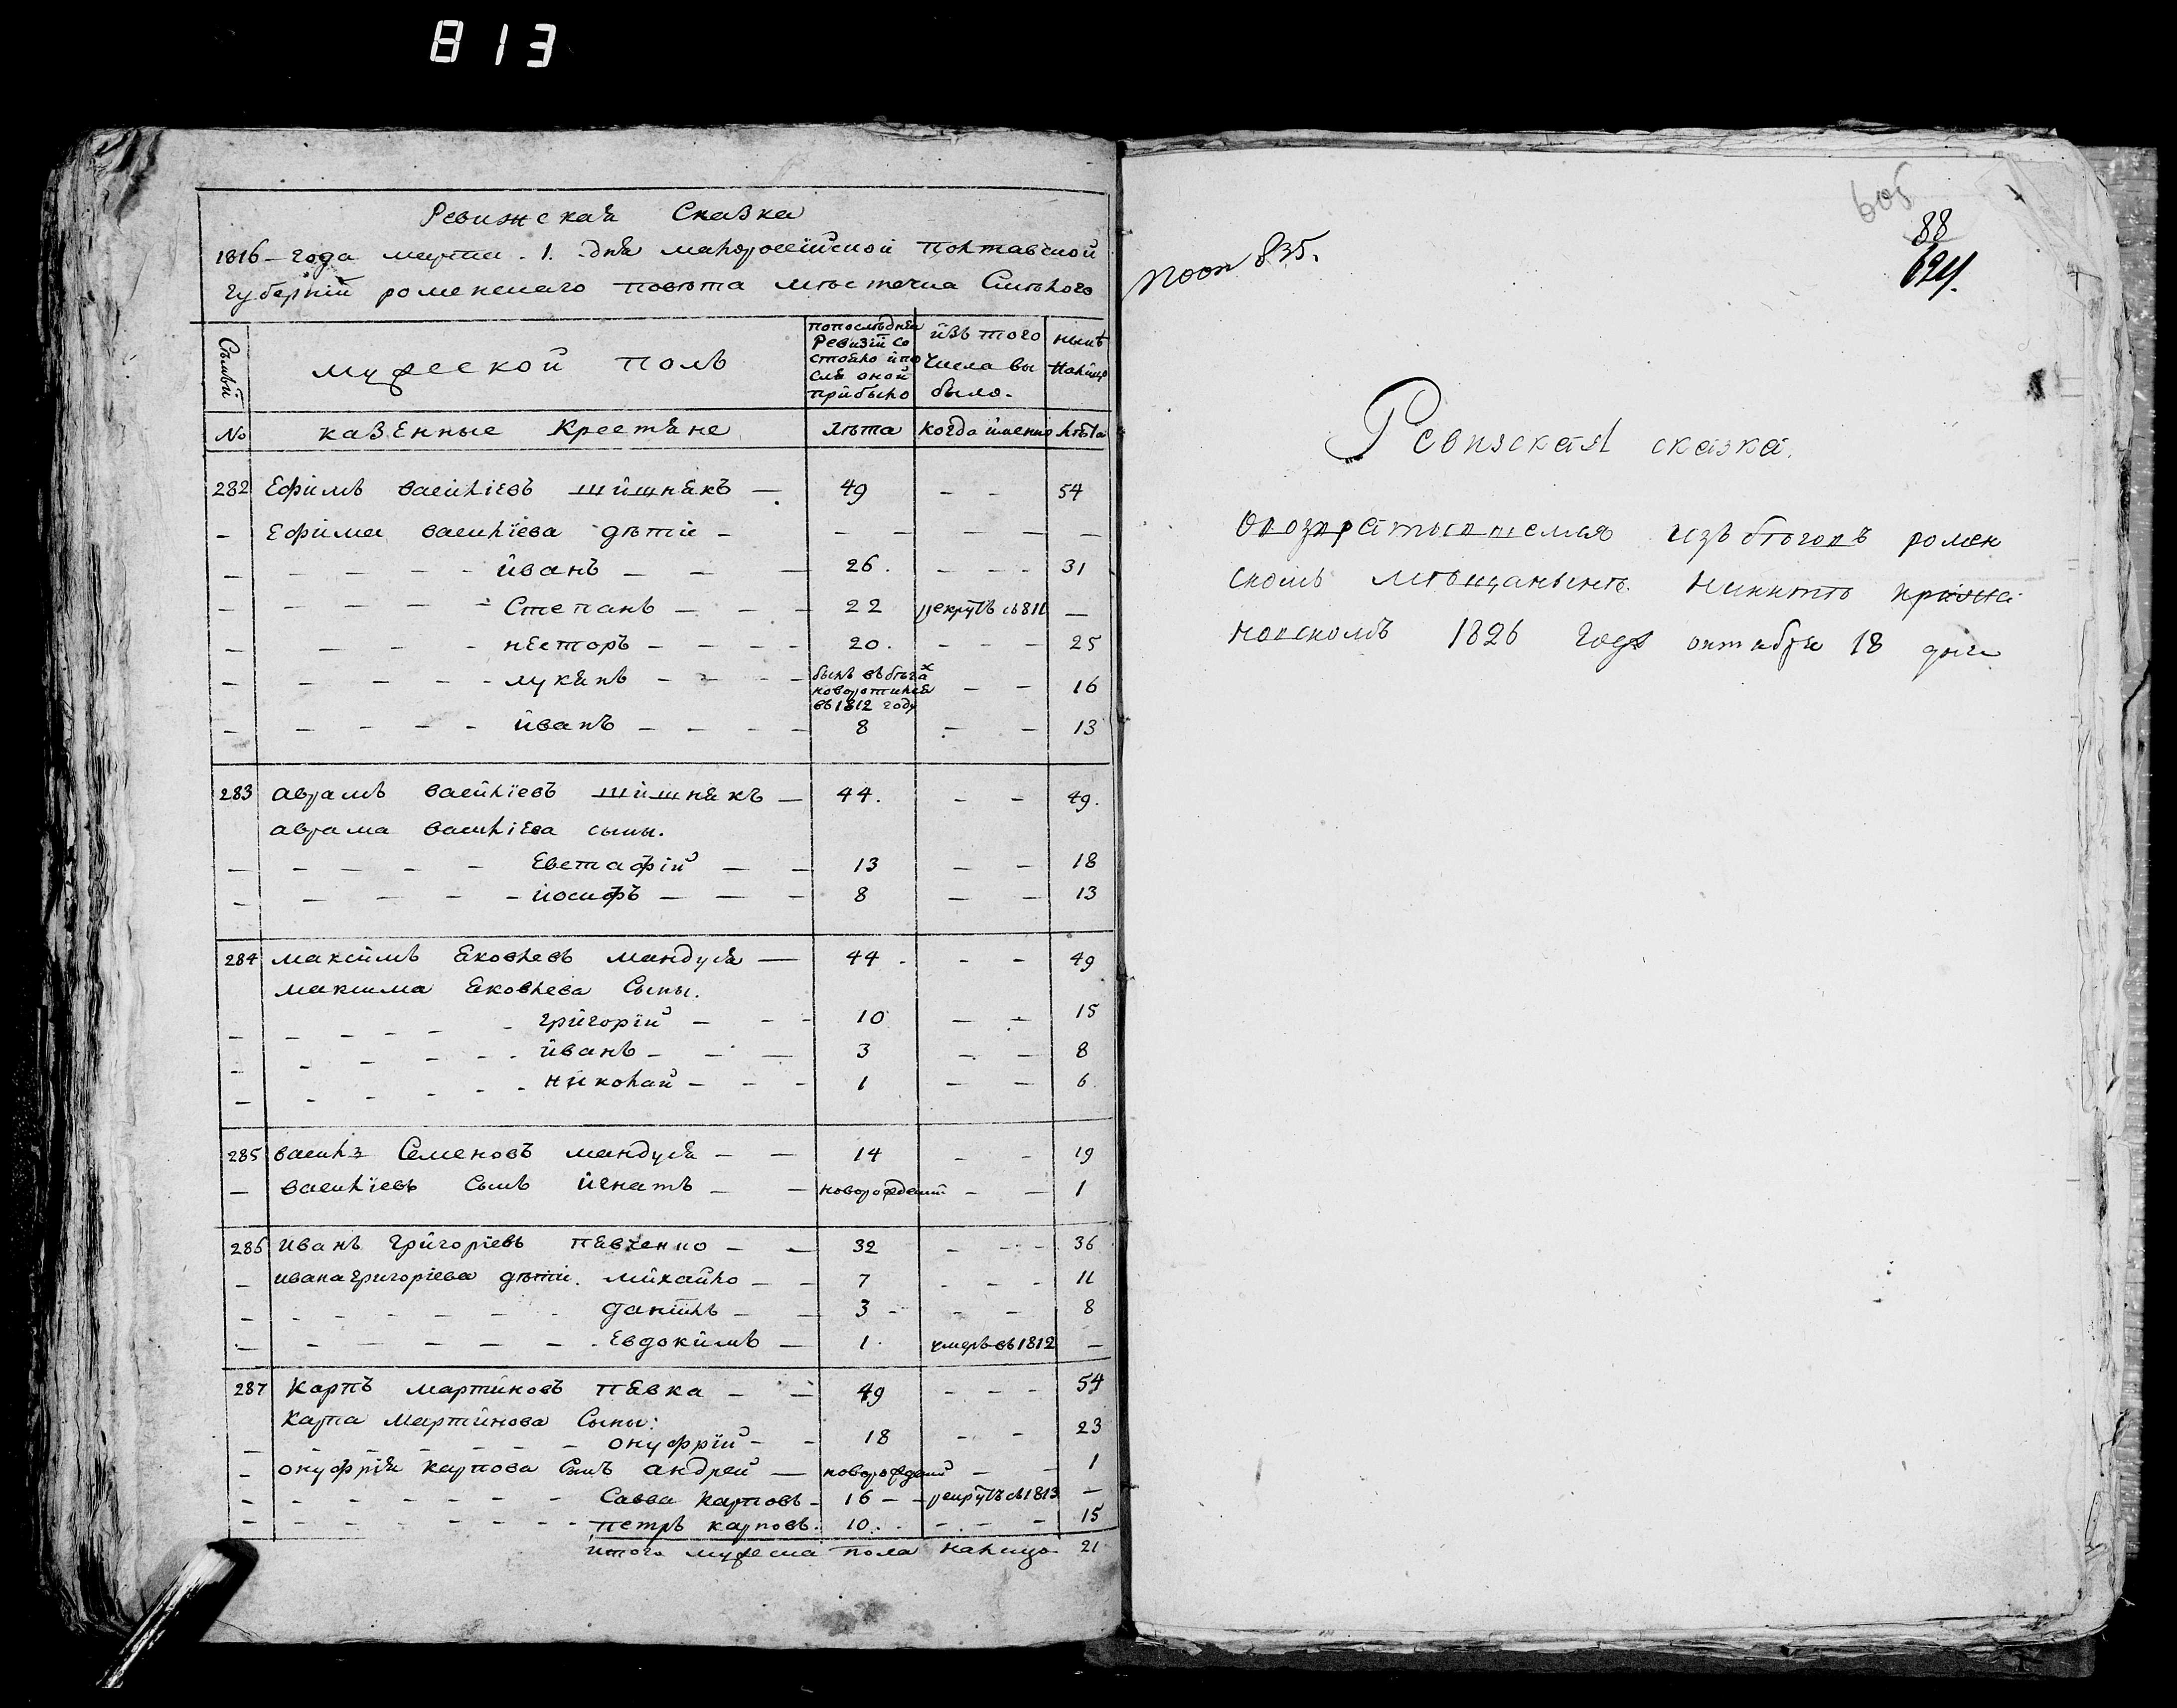 813
Ревижская Сказка
1816 – года марта . 1. дня малоросийской полтавской
губернїй роменскаго повѣта мѣстечка Смѣлого
Съмьи
мужеской полъ
попослѣдней Ревизїй состояло и после оной прибыло
изъ того числа выбыло.
нынѣ налицо
No казенные Крестяне лѣта когда именно лѣта
282 Ефимъ васильевъ шишнякъ — 49 – – 54
– Ефима василїева дѣти – – – – – –
– – – – – – иванъ – – – 26. – – – 31
– – – – – – Степанъ – – – 22 рекрутъ въ 811 –
– – – – – несторъ – – – – 20. – – – 25
– – – – – – лукянъ – – – былъ въ бѣгах новоротился въ 1812 году – – 16
– – – – – – иванъ – – – – 8 – – 13
283 аврамъ василїевъ шишнякъ – 44. – – 49.
аврама василїева сыны.
– – – – – – Евстафїй – – 13 – – 18
– – – – – – иосифъ – – – 8 – – 13
284 максимъ яковлевъ мандуся — 44 . – – 49
максима яковлева Сыны.
– – – – – – григорїй – – – 10 – – 15
– – – – – – иванъ – – – 3 – – 8
– – – – – – николай – – – 1 – – 6.
285 василь Семеновъ мандуся – – 14 – – 19
– василїевъ Сынъ игнатъ – – новорожденый – – 1
286 иванъ григорїевъ пявченко – – 32 – – – 36
– ивана григорїева дѣти. михайло – – 7 – – – 11
– – – – – – – данилъ – – 3 – – – 8
– – – – – – – Евдокимъ – 1. умеръ въ 1812 –
287 Карпъ мартиновъ пявка – – 49 – – – 54
Карпа мартинова Сыны:
– – – – – – – онуфрїй – – 18 – – 23
– онуфрїя карпова Сынъ андрей — новорожденый – – 1
– – – – – – – Савва карповъ – 16 – – рекрутъ въ 1813 –
– – – – – – – петръ карповъ. 10. . – . – – 15
итого мужеска пола налицо 21
605
88
694.
835.
Ревизская сказка.
овозвратившемся изъ бѣговъ ромен
скомъ мѣщанинѣ Никитѣ
1826 года октября 18 дня